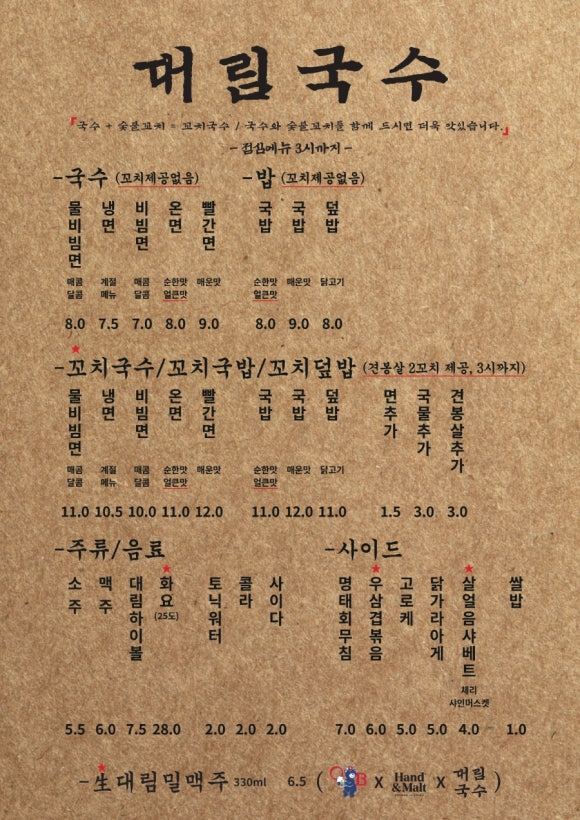 대림국수
『국수 + 숯불꼬치 = 꼬치국수 / 국수와 숯불꼬치를 함께 드시면 더욱 맛있습니다.』
- 점심메뉴 3시까지 -
-국수 (꼬치제공없음)
물비빔면 냉면 비빔면 온면 빨간면
매콤달콤 계절메뉴 매콤달콤 순한맛얼큰맛 매운맛
8.0 7.5 7.0 8.0 9.0
-밥 (꼬치제공없음)
국밥 국밥 덮밥
순한맛얼큰맛 매운맛 닭고기
8.0 9.0 8.0
-꼬치국수/꼬치국밥/꼬치덮밥 (견봉살 2꼬치 제공, 3시까지)
물비빔면 냉면 비빔면 온면 빨간면 국밥 국밥 덮밥 면추가 국물추가 견봉살추가
매콤달콤 계절메뉴 매콤달콤 순한맛얼큰맛 매운맛 순한맛얼큰맛 매운맛 닭고기
11.0 10.5 10.0 11.0 12.0 11.0 12.0 11.0 1.5 3.0 3.0
-주류/음료
소주 맥주 대림하이볼 화요 (25도) 토닉워터 콜라 사이다
5.5 6.0 7.5 28.0 2.0 2.0 2.0
-사이드
명태회무침 우삼겹볶음 고로케 닭가라아게 살얼음샤베트 쌀밥
체리
샤인머스켓
7.0 6.0 5.0 5.0 4.0 1.0
-生대림밀맥주 330ml 6.5 ( X Hand &Malt X 대림국수 )